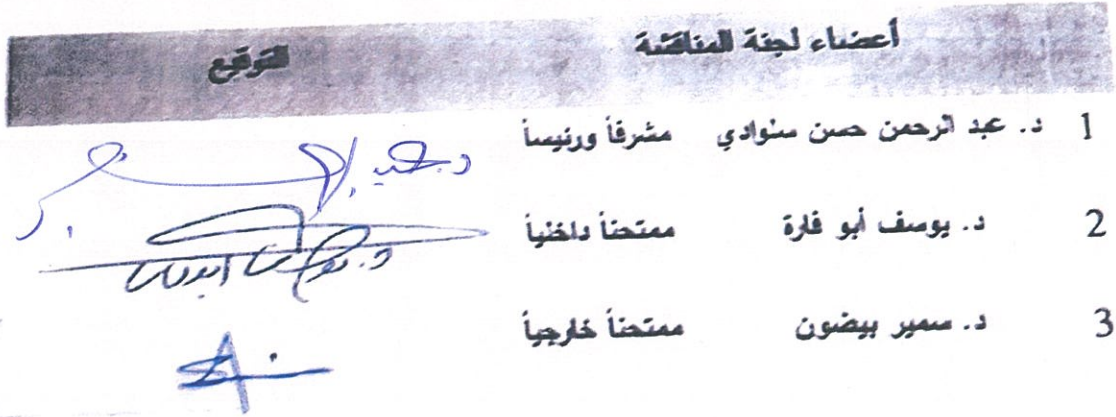 أعضاء لجنة المناقشة التوقيع
1 د. عبد الرحمن حسن سلوادي مشرفاً ورئيساً
2 د. يوسف أبو فارة ممتحناً داخلياً
3 د. سمير بيضون ممتحناً خارجياً